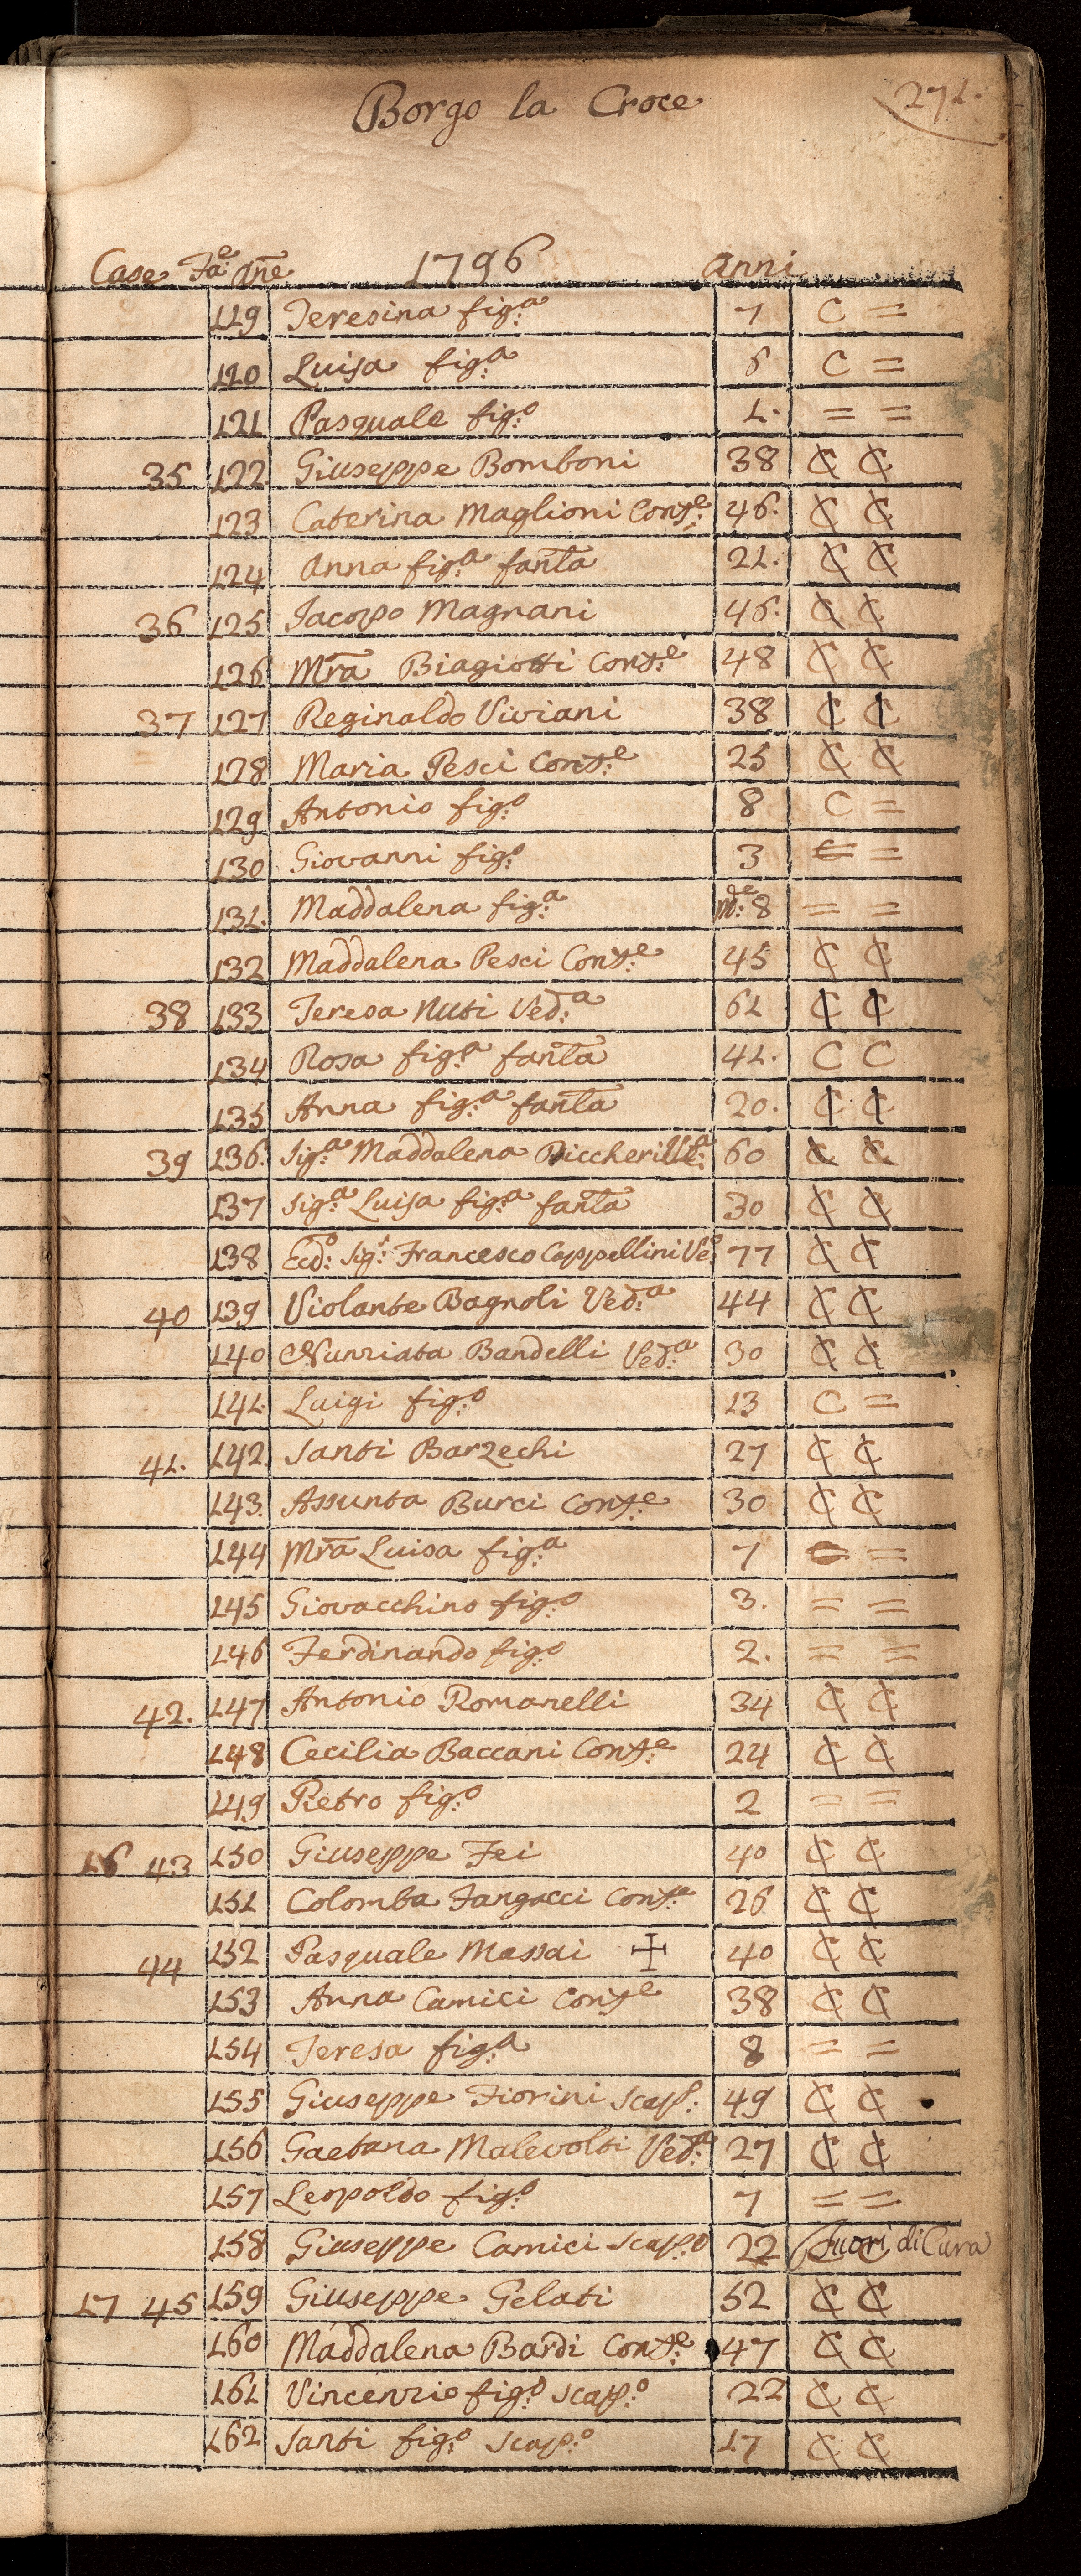 Borgo la Croce
271.
Case Fa:e Ane 1796 anni
119 Teresina fig:a 7 C =
120 Luisa fig:a 6 C =
121 Pasquale fig:o 1. = =
35 122 Giuseppe Bomboni 38 C C
123 Caterina Maglioni Cons:e 46. C C
124 Anna fig:a fanta 21. C C
36 125 Jacopo Magnani 46. C C
126 Mra Biagiotti Cons:e 48 C C
37 127 Reginaldo Viviani 38 C C
128 Maria Pesci Cons:e 25 C C
129 Antonio fig:o 8 C =
130 Giovanni fig:o 3 = =
131. Maddalena fig:a M:e 8 = =
132 Maddalena Pesci Cons:e 45 C C
38 133 Teresa Nuti Ved:a 61 C C
134 Rosa fig:a fanta 41. C C
135 Anna fig:a fanta 20. C C
39 136. Sig:a Maddalena 60 C C
137 Sig:a Luisa fig:a fanta 30 C C
138 Sig:r Francesco Cappellini Ve:o 77 C C
40 139 Violante Bagnoli Ved:a 44 C C
140 Nunziata Bandelli Ved:a 30 C C
141. Luigi fig:o 13 C =
41. 142 Santi Barzechi 27 C C
143. Assunta Burci Cons:e 30 C C
144 Mra Luisa fig:a 7 = =
145 Giovacchino fig:o 3. = =
146 Ferdinando fig:o 2. = =
42. 147 Antonio Romanelli 34 C C
148 Cecilia Baccani Cons:e 24 C C
149 Pietro fig:o 2 = =
16 43 150 Giuseppe Fei 40 C C
151 Colomba Fangacci Cons:e 26 C C
44 152 Pasquale Massai ✠ 40 C C
153 Anna Camici Cons:e 38 C C
154 Teresa fig:a 8 = =
155 Giuseppe Fiorini Scap: 49 C C
156 Gaetana Malevolti Ved:a 27 C C
157 Leopoldo fig:o 7 = =
158 Giuseppe Camici Scap:o 22 fuori di Cura
17 45 159 Giuseppe Gelati 52 C C
160 Maddalena Bardi Cons:e 47 C C
161 Vincenzio fig:o Scap:o 22 C C
162 Santi fig:o Scap:o 17 C C